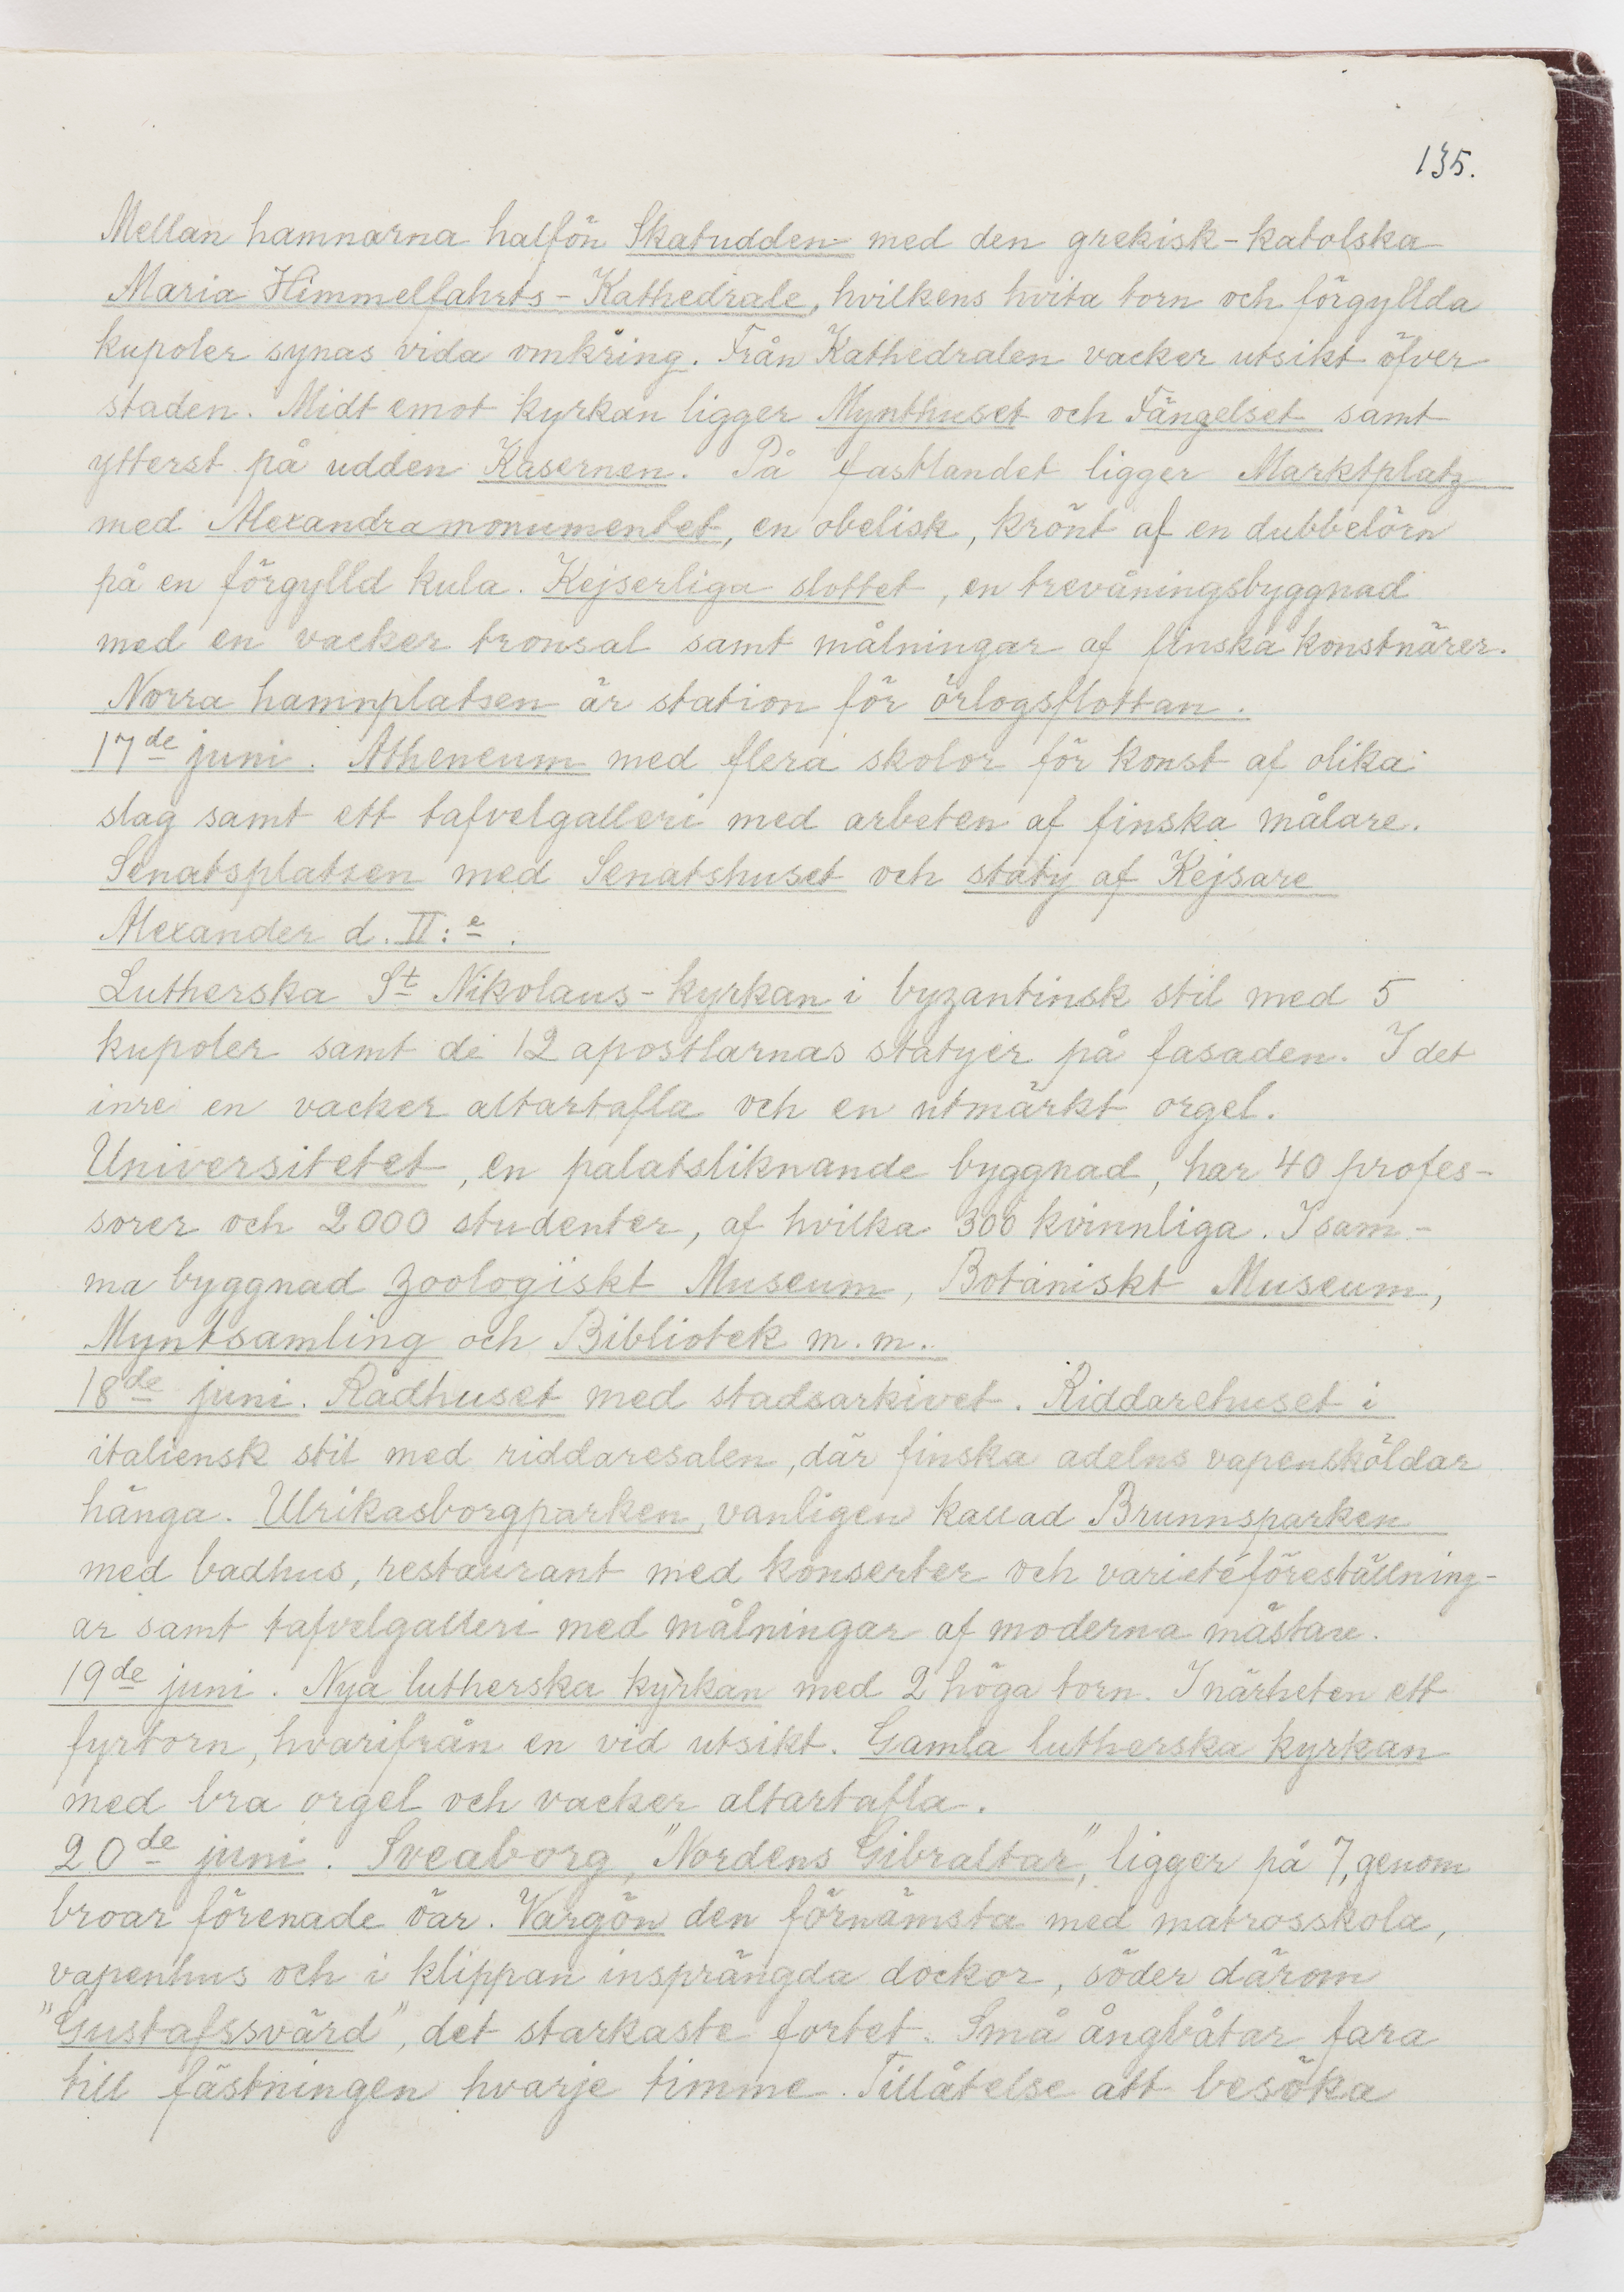 135.
Mellan hamnarna halfön Skatudden med den grekisk-katolska
Maria Himmelfahrts-Kathedrale, hvilkens hvita torn och förgyllda
kupoler synas vida omkring. Från Kathedralen vacker utsikt öfver
staden. Midt emot kyrkan ligger Mynthuset och Fängelset samt
ytterst på udden Kasernen. På fastlandet ligger Marktplatz
med Alexandramonumentet, en obelisk, krönt af en dubbelörn
på en förgylld kula. Kejserliga slottet, en trevåningsbyggnad
med en vacker tronsal samt målningar af finska konstnärer.
Norra hamnplatsen är station för örlogsflottan.
17de juni. Atheneum med flera skolor för konst af olika
slag samt ett tafvelgalleri med arbeten af finska målare.
Senatsplatsen med Senatshuset och staty af Kejsare
Alexander d. II:e.
Lutherska St Nikolaus-kyrkan i byzantinsk stil med 5
kupoler samt de 12 apostlarnas statyer på fasaden. I det
inre en vacker altartafla och en utmärkt orgel.
Universitetet, en palatsliknande byggnad, har 40 profes-
sorer och 2000 studenter, af hvilka 300 kvinnliga. I sam-
ma byggnad zoologiskt Museum, Botaniskt Museum,
Myntsamling och Bibliotek m.m.
18de juni. Rådhuset med stadsarkivet. Riddarehuset i
italiensk stil med riddaresalen, där finska adelns vapensköldar
hänga. Ulrikasborgparken, vanligen kallad Brunnsparken
med badhus, restaurant med konserter och varietéföreställning-
ar samt tafvelgalleri med målningar af moderna mästare.
19de juni. Nya lutherska kyrkan med 2 höga torn. I närheten ett
fyrtorn, hvarifrån en vid utsikt. Gamla lutherska kyrkan
med bra orgel och vacker altartafla.
20de juni. Sveaborg, "Nordens Gibraltar", ligger på 7, genom
broar förenade öar. Vargön den förnämsta med matrosskola,
vapenhus och i klippan insprängda dockor, söder därom
"Gustafssvärd", det starkaste fortet. Små ångbåtar fara
till fästningen hvarje timme. Tillåtelse att besöka